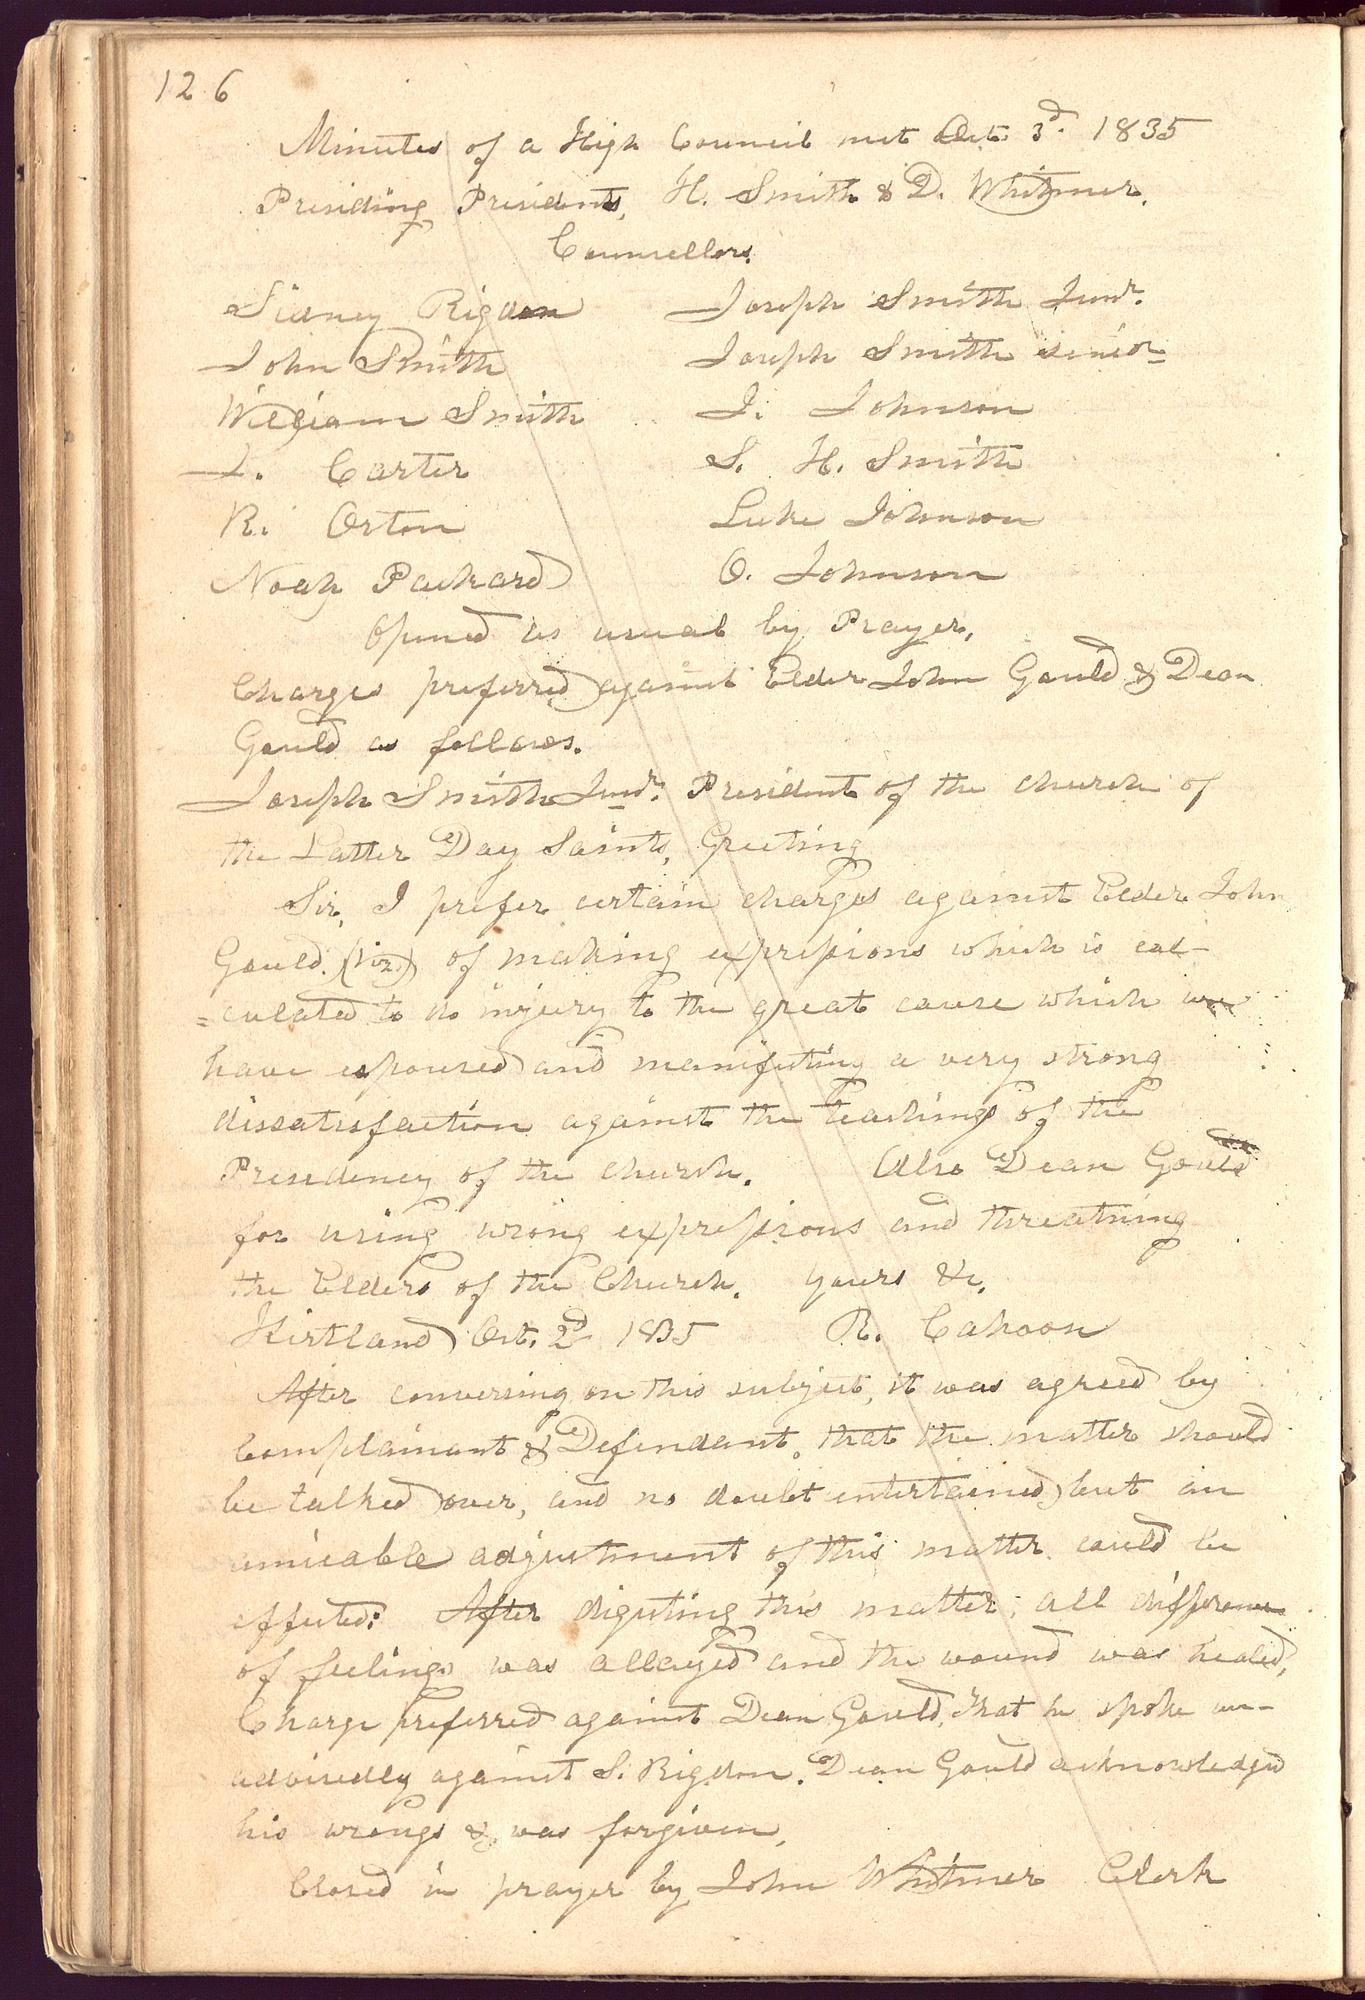 126
Minutes of a High Council met Oct. 3d. 1835
Presiding Presidents, H. Smith & D. Whitmer.
Councellors.
Sidney Rigdon Joseph Smith Junr.
John Smith Joseph Smith senior
William Smith J. Johnson
J. Carter S. H. Smith
R. Orton Luke Johnson
Noah Packard O. Johnson
Opened as usual by Prayer,
Charges preferred against Elder John Gould & Dean
Gould as follows.
Joseph Smith Junr. President of the church of
the Latter Day Saints, Greeting
Sir, I prefer certain charges against Elder John
Gould. (viz.) of making expressions which is cal-
=culated to do injury to the great cause which we
have espoused and manifesting a very strong
dissatisfaction against the teachings of the
Presidency of the church. Also Dean Gould
for using wrong expressions and threatning
the Elders of the Church. Yours &c.
Kirtland Oct. 2d 1835 R. Cahoon
After conversing on this subject, it was agreed by
Complainant & Defendant, that the matter should
be talked over, and no doubt entertained but an
amicable adjustment of this matter could be
effected: After digesting this matter, all difference
of feelings was allayed and the wound was healed,
Charge preferred against Dean Gould, that he spoke un-
advisedly against S. Rigdon. Dean Gould acknowledged
his wrongs & was forgiven,
Closed in prayer by John Whitmer Clerk